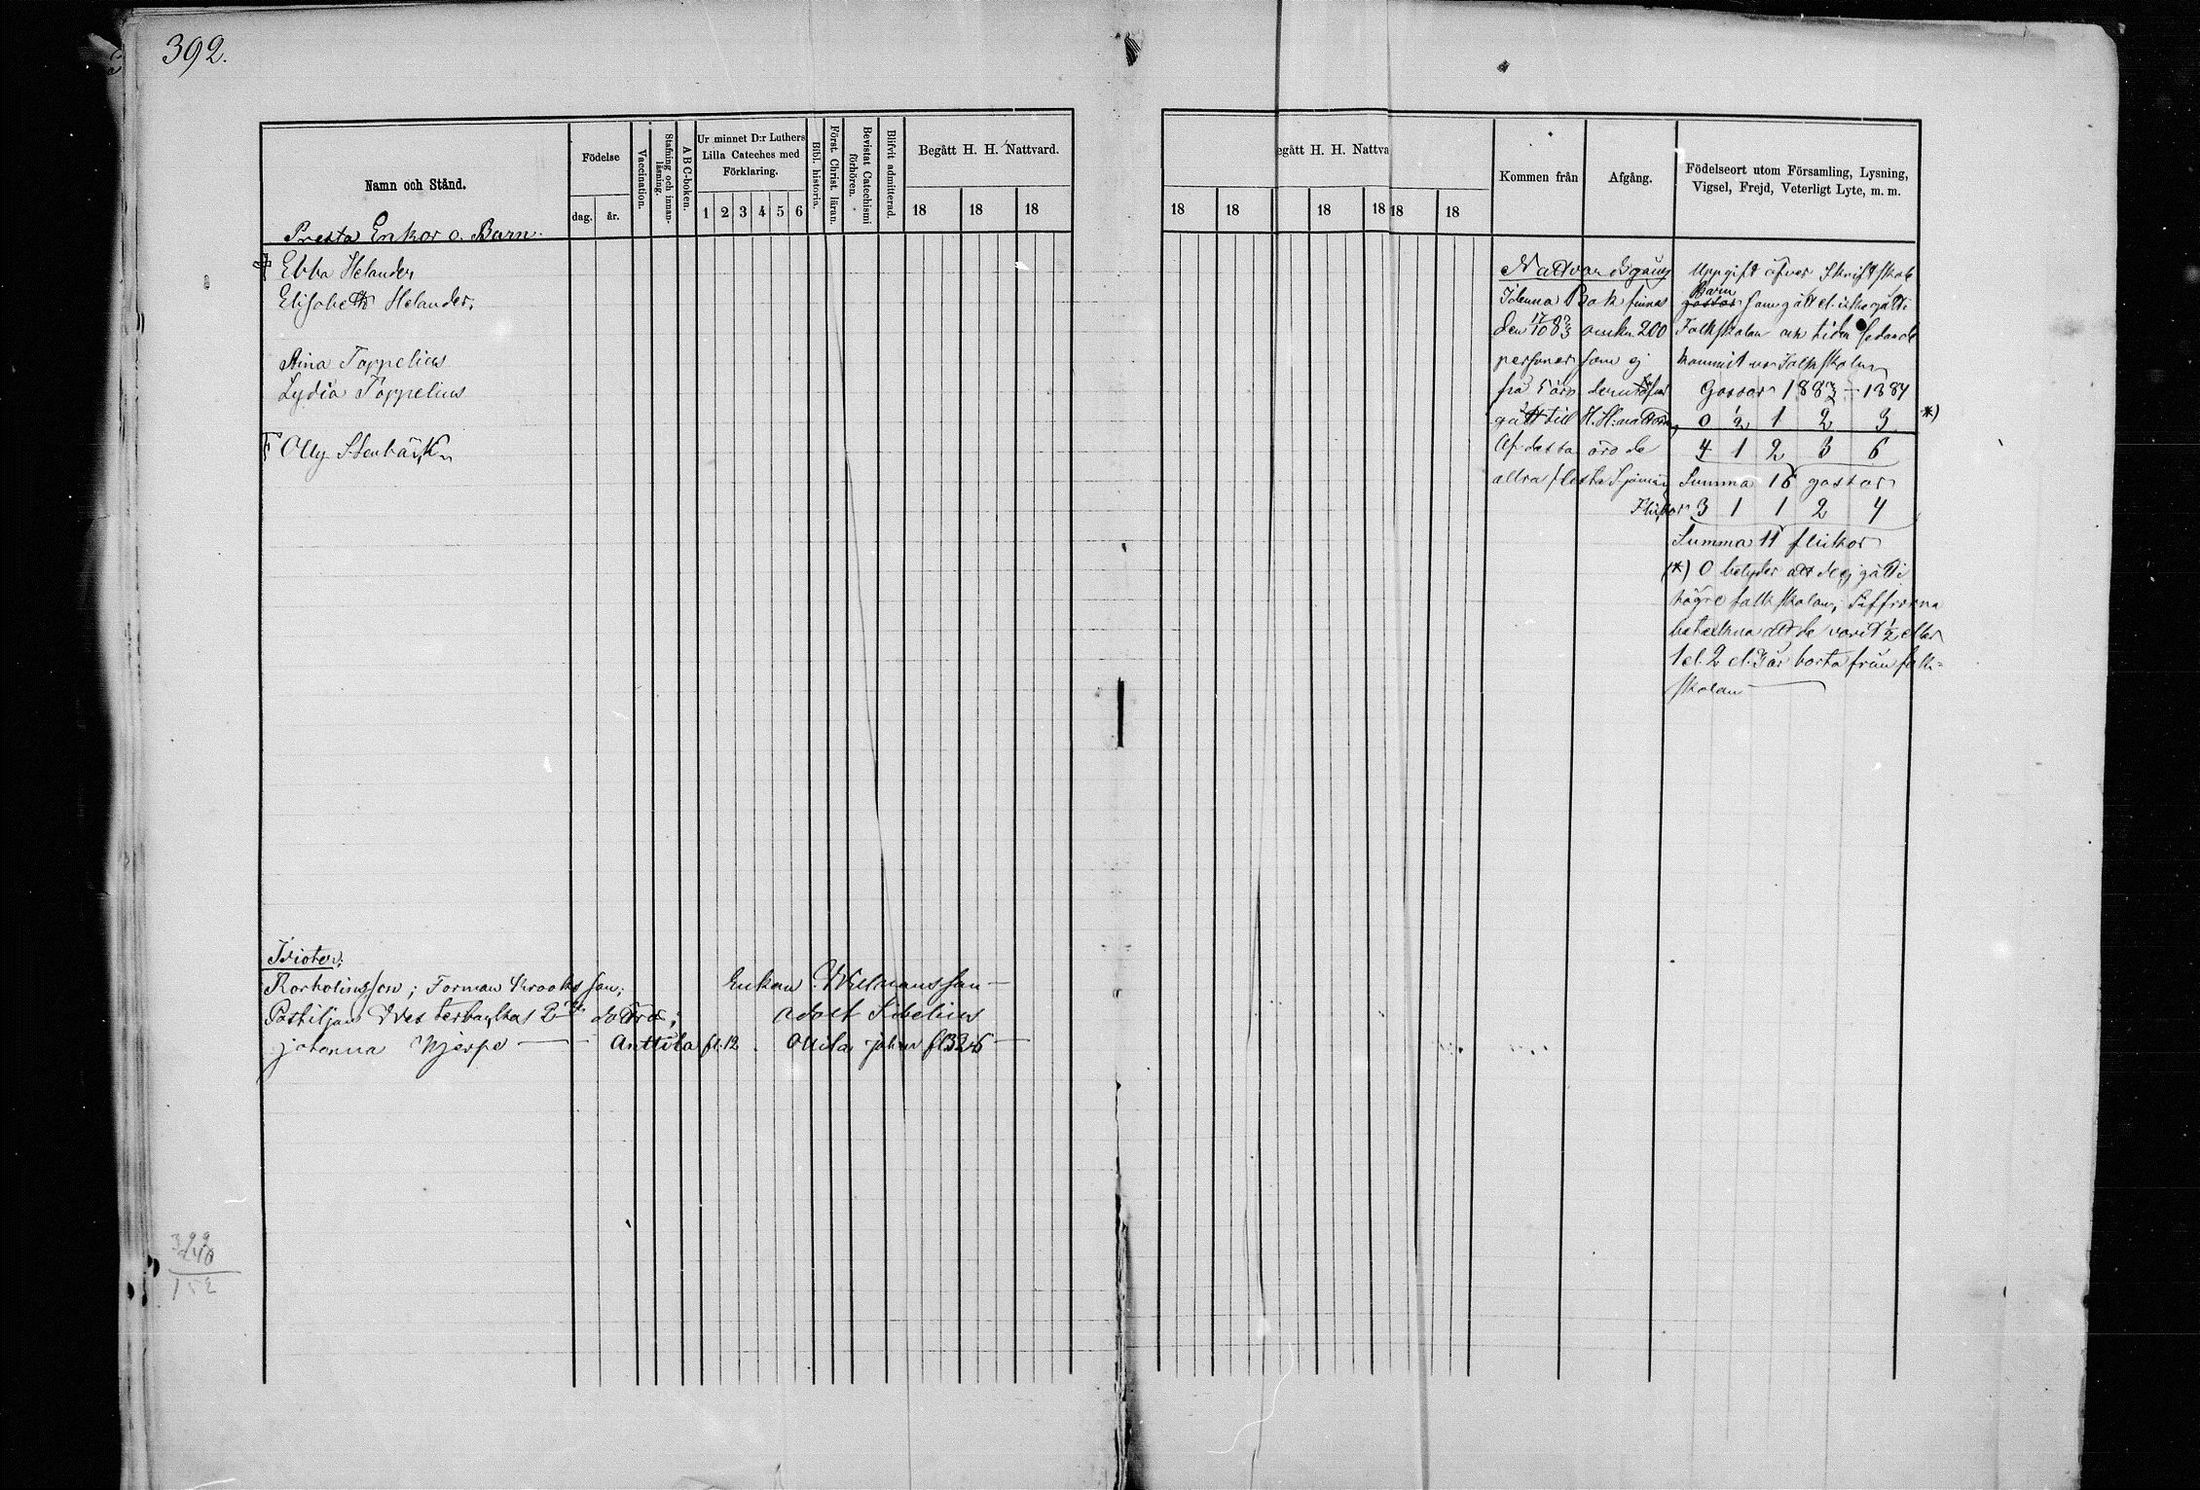 392.
Namn och Stånd.
Födelse
dag.
år.
Vaccination.
Stafning och innan-
läsning.
A B C-boken.
Ur minnet D:r Luthers
Lilla Cateches med
Förklaring.
1 2 3 4 5 6
Bibl. historia.
Först. Christ. läran.
Bevistat Catechismi
förhören.
Blifvit admitterad.
Begått H. H. Nattvard.
18 18 18
Presta Enkor o. Barn.
Ebba Helander
Elisabeth Helander.
Aina Toppelius
Lydia Toppelius
Olly Stenbäck
Idioter:
Forman Krooks son;
Enkan
Postiljon 2ne döttrar;
Adolf Sibelius
Johanna Hjerpe — Anttila fl. 12 . Johan fl 326 —
322
240
152
egått H. H. Nattva
18 18 18 18 18 18
Kommen från
Afgång.
Födelseort utom Församling, Lysning,
Vigsel, Frejd, Veterligt Lyte, m. m.
Nattvardsgång
I denna Bok finnes
den 17/10 83 omkr. 200
personer som ej
gått till H. H. nattvard
Af detta äro de
allra flesta Sjömän
Uppgift öfver Skriftskole
Barn
gossar som gått el. icke gått i
Folkskolan och tiden sedan de
kommit ur Folkskolan
Gossar 1883 – 1884
0 ½ 1 2 3 *)
4 1 2 3 6
Summa 16 gossar
Flickor 3 1 1 2 4
Summa 11 flickor
(*) 0 betyder att de ej gått i
högre folkskolan; Siffrorna
beteckna att de varit ½ eller
1 el. 2 el. 3 år borta från folk-
skolan